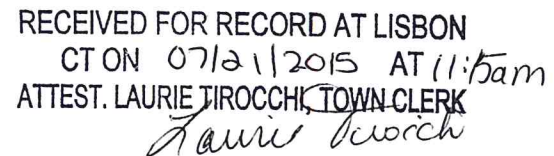 RECEIVED FOR RECORD AT LISBON
CT ON 07/21/2015 AT 11:15am
ATTEST. LAURIE TIROCCHI, TOWN CLERK
Laurie Tirocchi